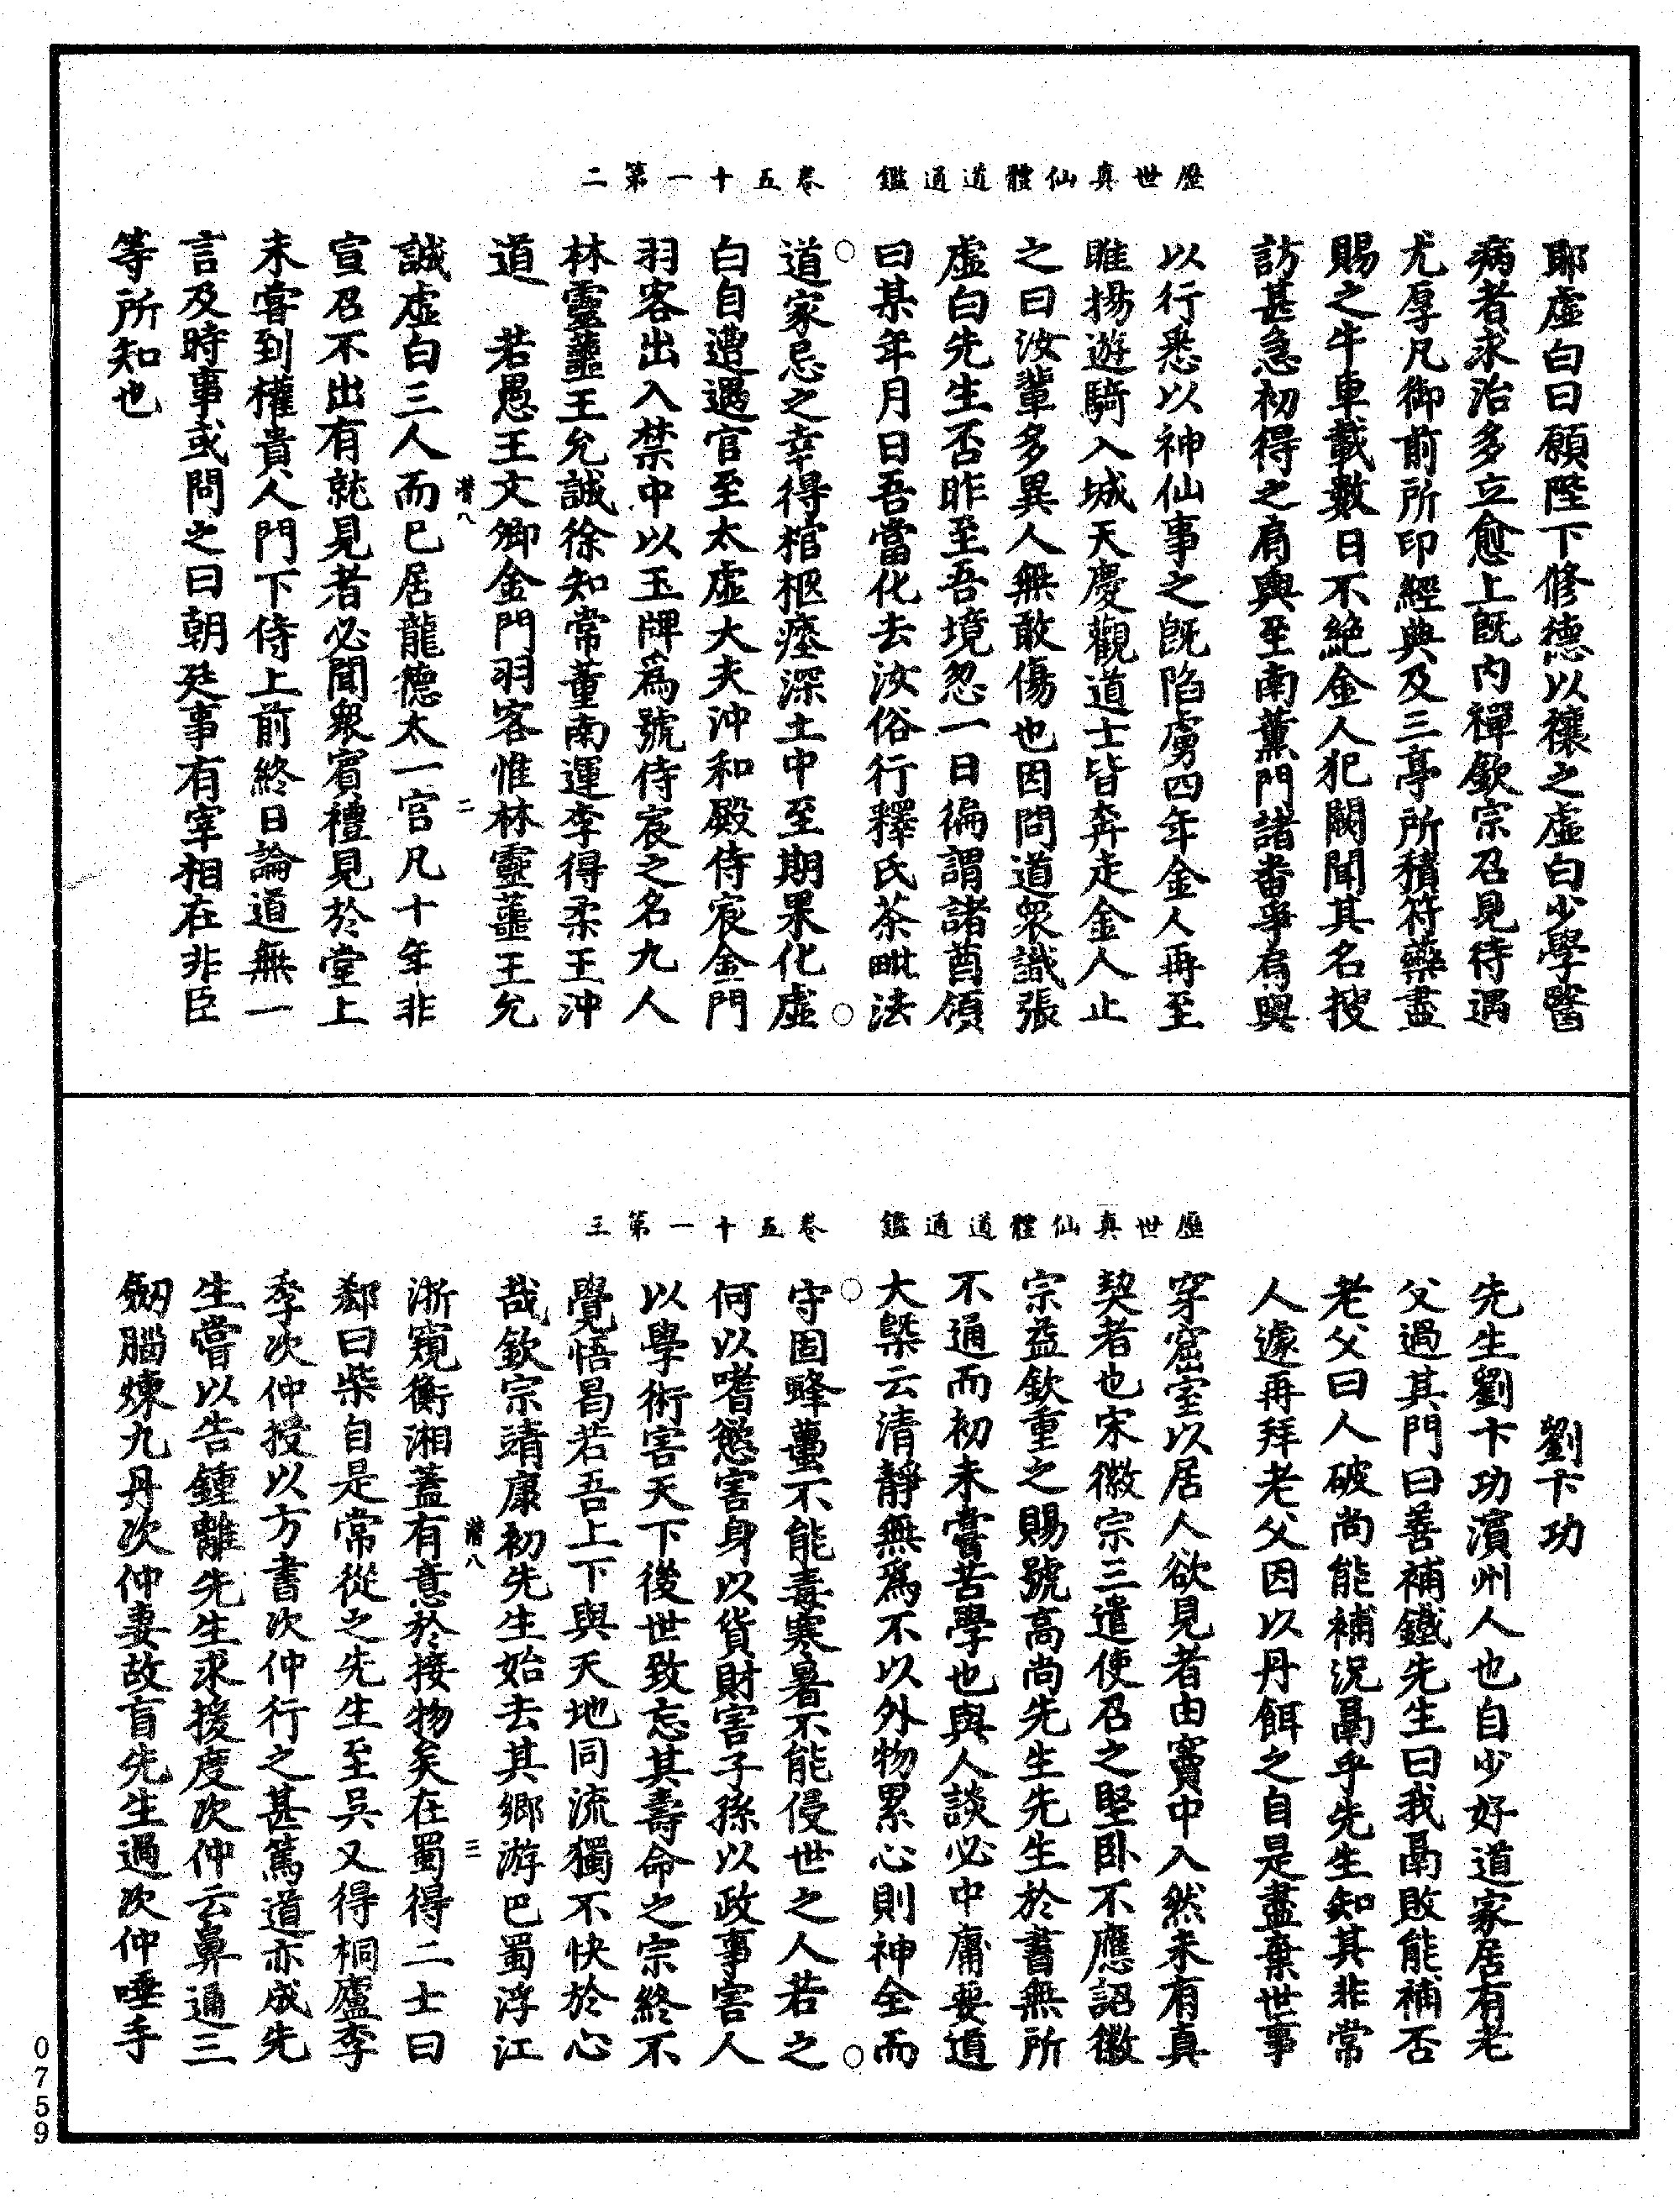 歷世真仙體道通鑑　卷五十一第二
耶虛白曰願陛下修德以禳之虛白少學醫
病者求治多立愈上既內禪欽宗召見待遇
尤厚凡御前所印經典及三亭所積符藥盡
賜之牛車載數日不絕金人犯闕聞其名搜
訪甚急初得之肩輿至南薰門諸酋爭肩輿
以行悉以神仙事之既陷虜四年金人再至
睢揚遊騎入城天慶觀道士皆奔走金人止
之曰汝輩多異人無敢傷也因問道衆識張
虛白先生否昨至吾境忽一日徧謂諸酋領
曰某年月日吾當化去汝俗行釋氏茶毗法
道家忌之幸得棺柩瘞深土中至期果化虛
白自遭遇官至太虛大夫沖和殿侍宸金門
羽客出入禁中以玉牌爲號侍宸之名九人
林靈蘁王允誠徐知常董南運李得柔王沖
道　若愚王文卿金門羽客惟林靈蘁王允
誠虛白三人而已居龍德太一宮凡十年非
宣召不出有就見者必聞衆賓禮見於堂上
未嘗到權貴人門下侍上前終日論道無一
言及時事或問之曰朝廷事有宰相在非臣
等所知也
歷世真仙體道通鑑　卷五十一第三
劉卞功
先生劉卞功濱州人也自少好道家居有老
父過其門曰善補鐵先生曰我鬲敗能補否
老父曰人破尚能補況鬲乎先生知其非常
人遽再拜老父因以丹餌之自是盡棄世事
穿窟室以居人欲見者由竇中入然未有真
契者也宋徽宗三遣使召之堅卧不應詔徽
宗益欽重之賜號高尚先生先生於書無所
不通而初未嘗苦學也與人談必中庸要道
大槩云清靜無爲不以外物累心則神全而
守固蜂蠆不能毒寒暑不能侵世之人若之
何以嗜慾害身以貨財害子孫以政事害人
以學術害天下後世致忘其壽命之宗終不
覺悟曷若吾上下與天地同流獨不快於心
哉欽宗靖康初先生始去其鄉游巴蜀浮江
浙窺衡湘蓋有意於接物矣在蜀得二士曰
郄曰柴自是常從之先生至吳又得桐廬李
季次仲授以方書次仲行之甚篤道亦成先
生嘗以告鍾離先生求援度次仲云鼻通三
剏腦煉九丹次仲妻故盲先生過次仲唾手
潜八　二
潜八　三
0759